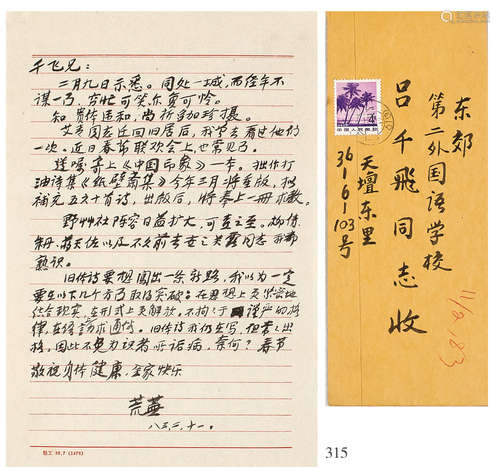 千飞兄：
二月九日示悉。同处一城，而经年不
谋一面，穷忙可笑亦复可怜。
知贵体违和，尚祈多加珍摄。
艾青同志迁回旧居后，我曾去看过他们
一次。近日春节联欢会上也常见了。
遵嘱寄上《中国印象》一本。拙作打
油诗集《纸壁斋集》今年三月将重版，拟
补充五六十首诗，出版后，将奉上一册求教。
野草社阵容日益扩大，可喜之至。
以及不久前去世之关露同志我都
熟识。
旧体诗要想闯出一条新路，我以为一定
要在以下几个方面取得突破：在思想上
结合现实，在形式上更解放，不拘于严的格
律，在语言力求通俗。旧体诗我仍在写，但常人出
格，因此不免为识者所诟病，奈何？春节
敬祝身体健康，全家快乐
荒芜
八三、二、十一。
东郊
第二外国语学校
吕千飞同志收
天坛东里
36-6-103号
11/2，83
中国人民邮政
315